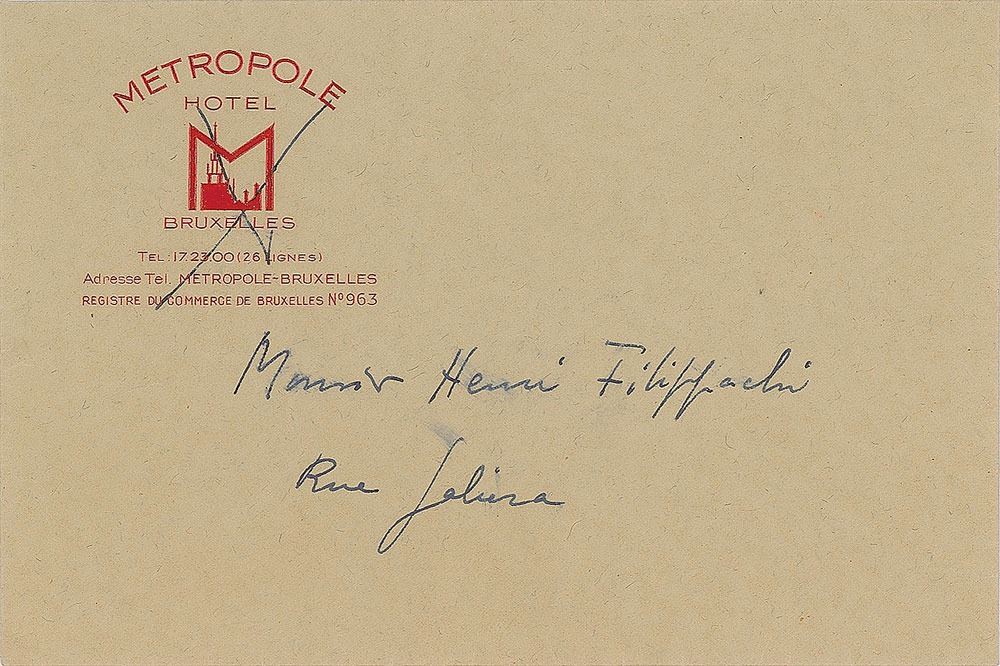 METROPOLE
HOTEL
BRUXELLES
TEL: 17.23.00 (26 LIGNES)
Adresse Tel. METROPOLE-BRUXELLES
REGISTRE DU COMMERCE DE BRUXELLES Nº 963
Monsieur Henri Filippachi
Rue